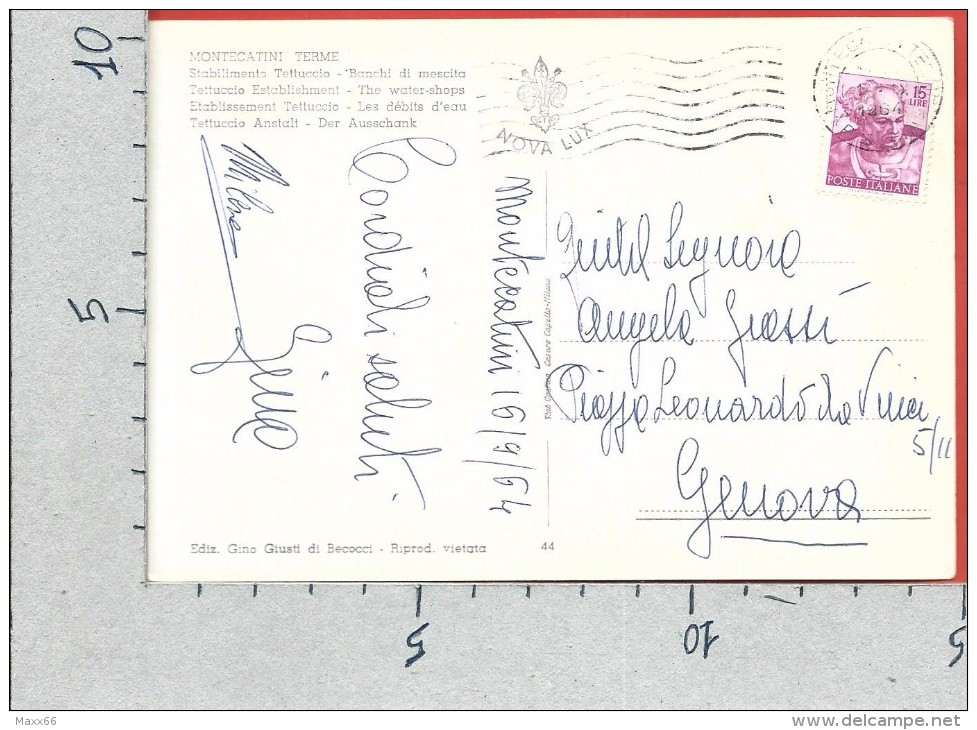 10
5
5
10
5
MONTECATINI TERME
Stabilimento Tettuccio - Banchi di mescita
Tettuccio Establishment - The water-shops
Etablissement Tettuccio - Les débits d'eau
Tettuccio Anstalt - Der Ausschank
NOVA LUX
15
LIRE
POSTE ITALIANE
Montecatini 16/9/64
Cordiali saluti
Gino
Gentil Signora
Angela Grassi
Piazza Leonardo da Vinci
5/11
Genova
Ediz. Gino Giusti di Becocci - Riprod. vietata
44
Maxx66
www.delcampe.net